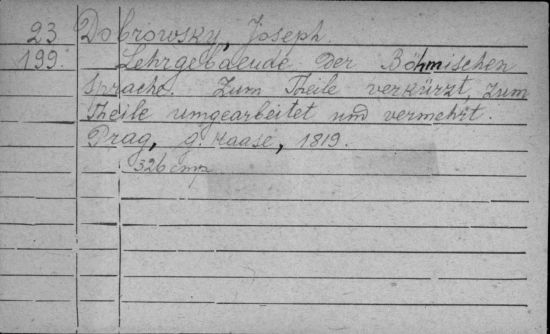 23 Dobrowsky, Joseph.
199. Lehrgebaeude der Böhmischen
Sprache. Zum Theile verkürzt, zum
Theile umgearbeitet und vermehrt.
Prag, g. Haase, 1819.
326 стр